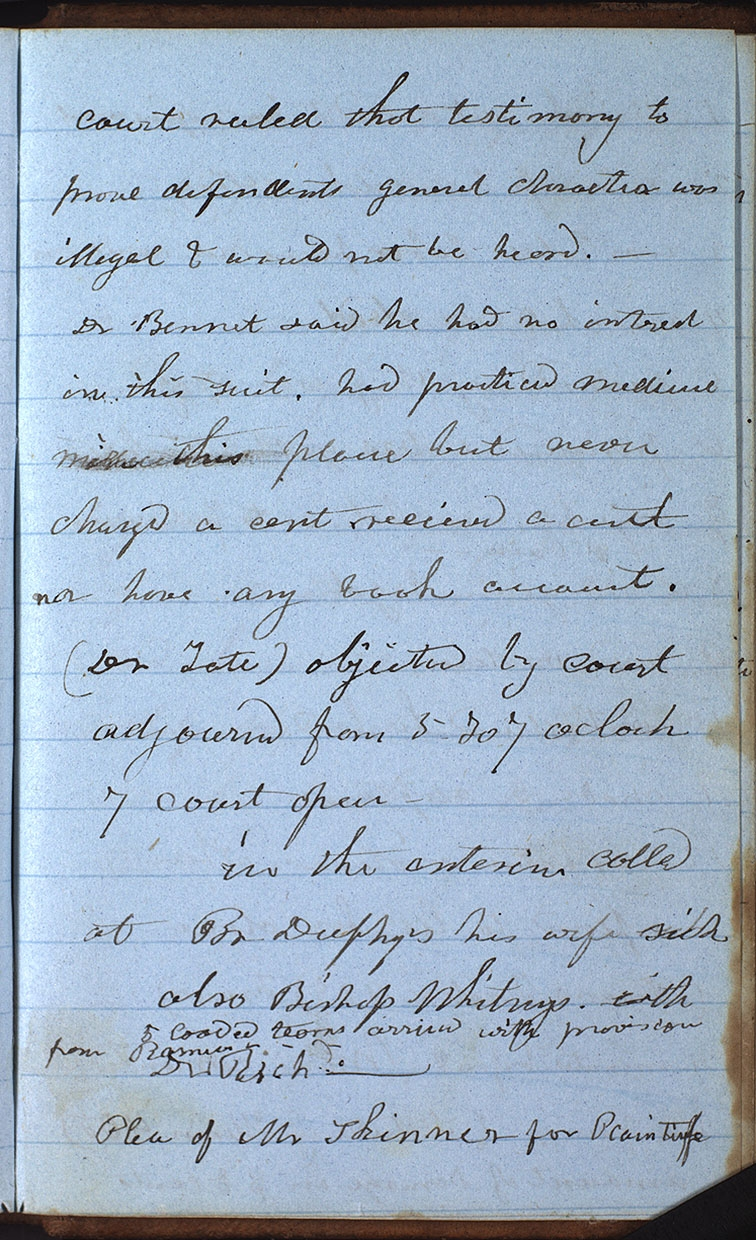 court ruled that testimony to
prove defendents general charactia was
illegal & would not be heard. —
Dr Bennet said he had no intered
in this suit. had practicd medicine
in this place but never
chargd a cent recieved a centt
nor have any book account.
(Dr Tate) objected by court
adjournd from 5 To 7 oclock
7 court open —
in the interim calld
at Br Duphy's his wife sick
also Bishop Whitneys. with
5 loaded teams arrivd with provision
from Ramus
Dr. Rich<sup>d</sup>: —
Plea of Mr Skinner for Plaintiffe